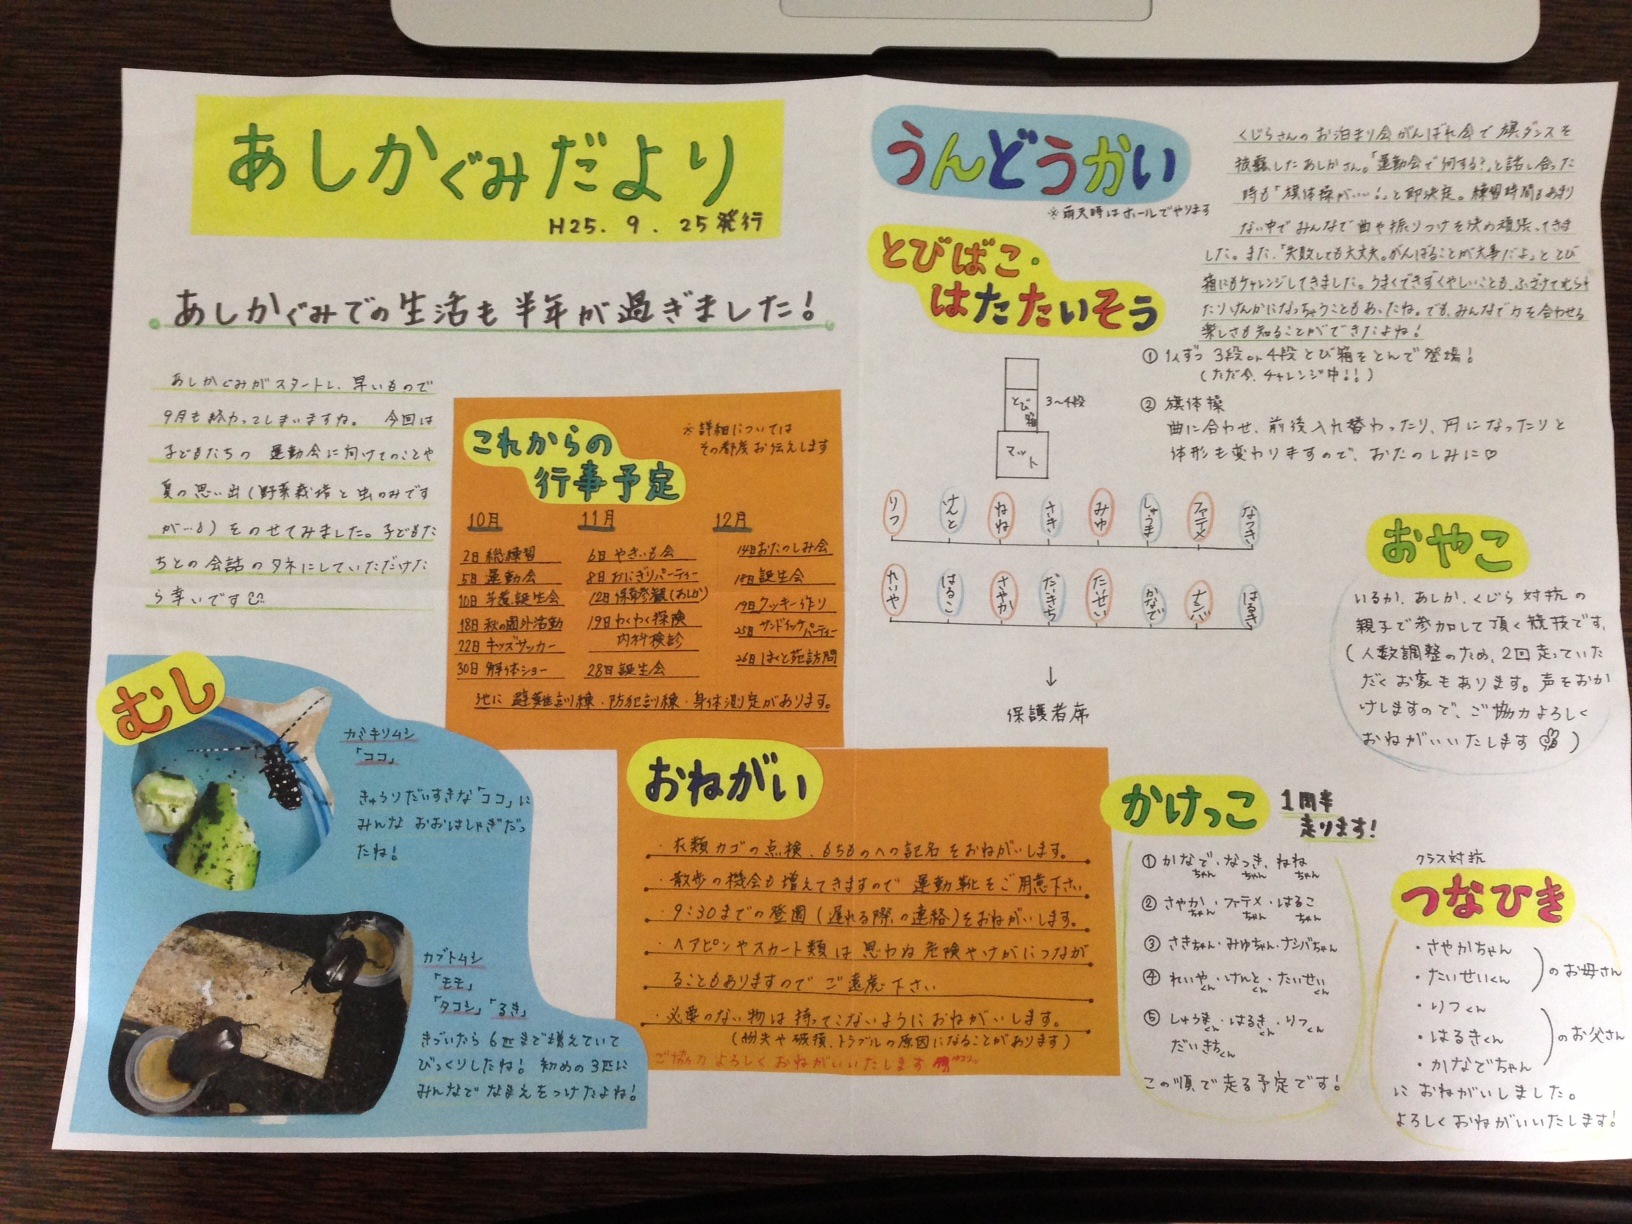 あしかぐみだより
H25.9.25発行
あしかぐみでの生活も半年が過ぎました!
あしかぐみがスタートし、早いもので
9月も終わってしまいますね。今回は
子どもたちの 運動会に向けてのことや
夏の思い出(野菜栽培と虫のみです
が…)をのせてみました。子どもた
ちとの会話のタネにしていただけた
ら幸いです
これからの
行事予定
※詳細については
その都度お伝えします
10月
2日 総練習
5日 運動会
10日 芋煮、誕生会
18日 秋の園外活動
22日 キッズサッカー
30日 解体ショー
11月
6日 やきいも会
8日 おにぎりパーティー
12日 保育参観(あしか)
19日 わくわく探険
内科検診
28日 誕生会
12月
14日 おたのしみ会
18日 誕生会
19日 クッキー作り
25日 サンドイッチパーティー
26日 ほくと苑訪問
他に 避難訓練・防犯訓練・身体測定があります。
むし
カミキリムシ
「ココ」
きゅうりだいすきな「ココ」に
みんな おおはしゃぎだっ
たね!
カブトムシ
「モモ」
「タコシ」「るき」
きづいたら 6匹まで増えていて
びっくりしたね! 初めの3匹に
みんなで なまえをつけたよね!
おねがい
・衣類カゴの点検、もちものへの記名をおねがいします。
・散歩の機会も増えてきますので 運動靴をご用意下さい
・9:30までの登園(遅れる際の連絡)をおねがいします。
・ヘアピンやスカート類は 思わぬ危険やけがにつなが
ることもありますので ご遠慮下さい
・必要のない物は 持ってこないようにおねがいします。
(紛失や破損、トラブルの原因になることがあります)
ご協力 よろしくおねがいいたします
うんどうかい
※雨天時はホールでやります
くじらさんのお泊まり会がんばれ会で 旗ダンスを
披露したあしかさん。「運動会で何する?」と話し合った
時も「旗体操がいい!」と即決定。練習時間もあまり
ない中で みんなで曲や振りつけを決め頑張ってきま
した。また、「失敗しても大丈夫。がんばることが大事だよ」ととび
箱にもチャレンジしてきました。うまくできずくやしいことも、ふざけてむらけ
たりけんかになっちゃうこともあったね。でも、みんなで力を合わせる
楽しさも知ることができたよね!
とびばこ・
はたたいそう
① 1人ずつ 3段or4段 とび箱をとんで登場!
(ただ今、チャレンジ中!!)
② 旗体操
曲に合わせ、前後入れ替わったり、円になったりと
体形も変わりますので、おたのしみに♡
とび箱
3〜4段
マット
りつ けんと ねね さき みゆ しゅうま ファテメ なつき
れいや はるこ さやか だいきち たいせい かなで ナシバ はるき
↓
保護者席
おやこ
いるか、あしか、くじら 対抗の
親子で参加して頂く競技です。
(人数調整のため、2回走っていた
だくお家もあります。声をおか
けしますので、ご協力よろしく
おねがいいたします)
かけっこ
1周半
走ります!
① かなでちゃん・なつきちゃん・ねねちゃん
② さやかちゃん・ファテメちゃん・はるこちゃん
③ さきちゃん・みゆちゃん・ナシバちゃん
④ れいやくん・けんとくん・たいせいくん
⑤ しゅうまくん・はるきくん・りつくん
だいきちくん
この順で走る予定です!
クラス対抗
つなひき
・さやかちゃん
・たいせいくん
のお母さん
・りつくん
・はるきくん
・かなでちゃん
のお父さん
に おねがいしました。
よろしくおねがいいたします!